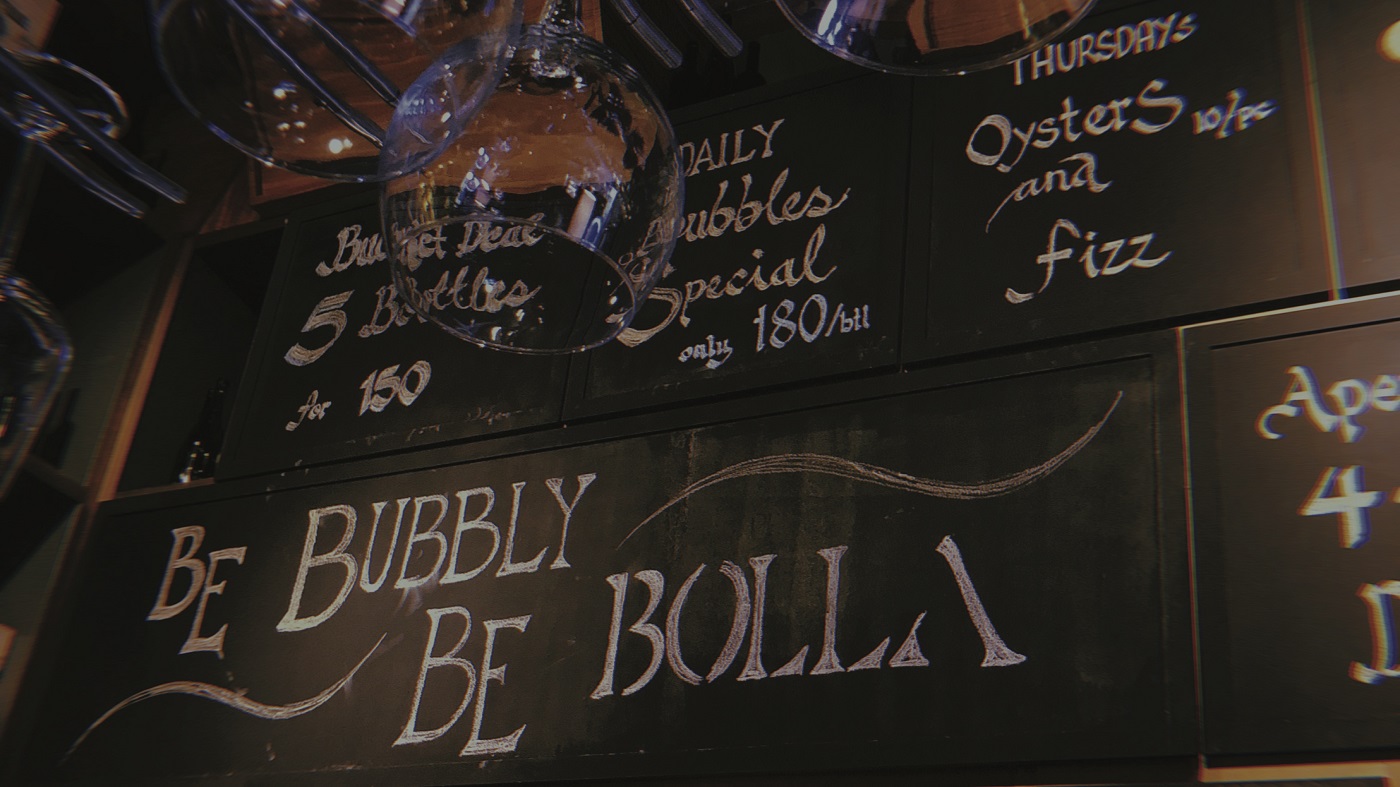 Bucket Deal
5 Bottles
for 150
DAILY
Bubbles
Special
only 180/btl
THURSDAYS
OysterS 10/pc
and
fizz
BE BUBBLY
BE BOLLA
4